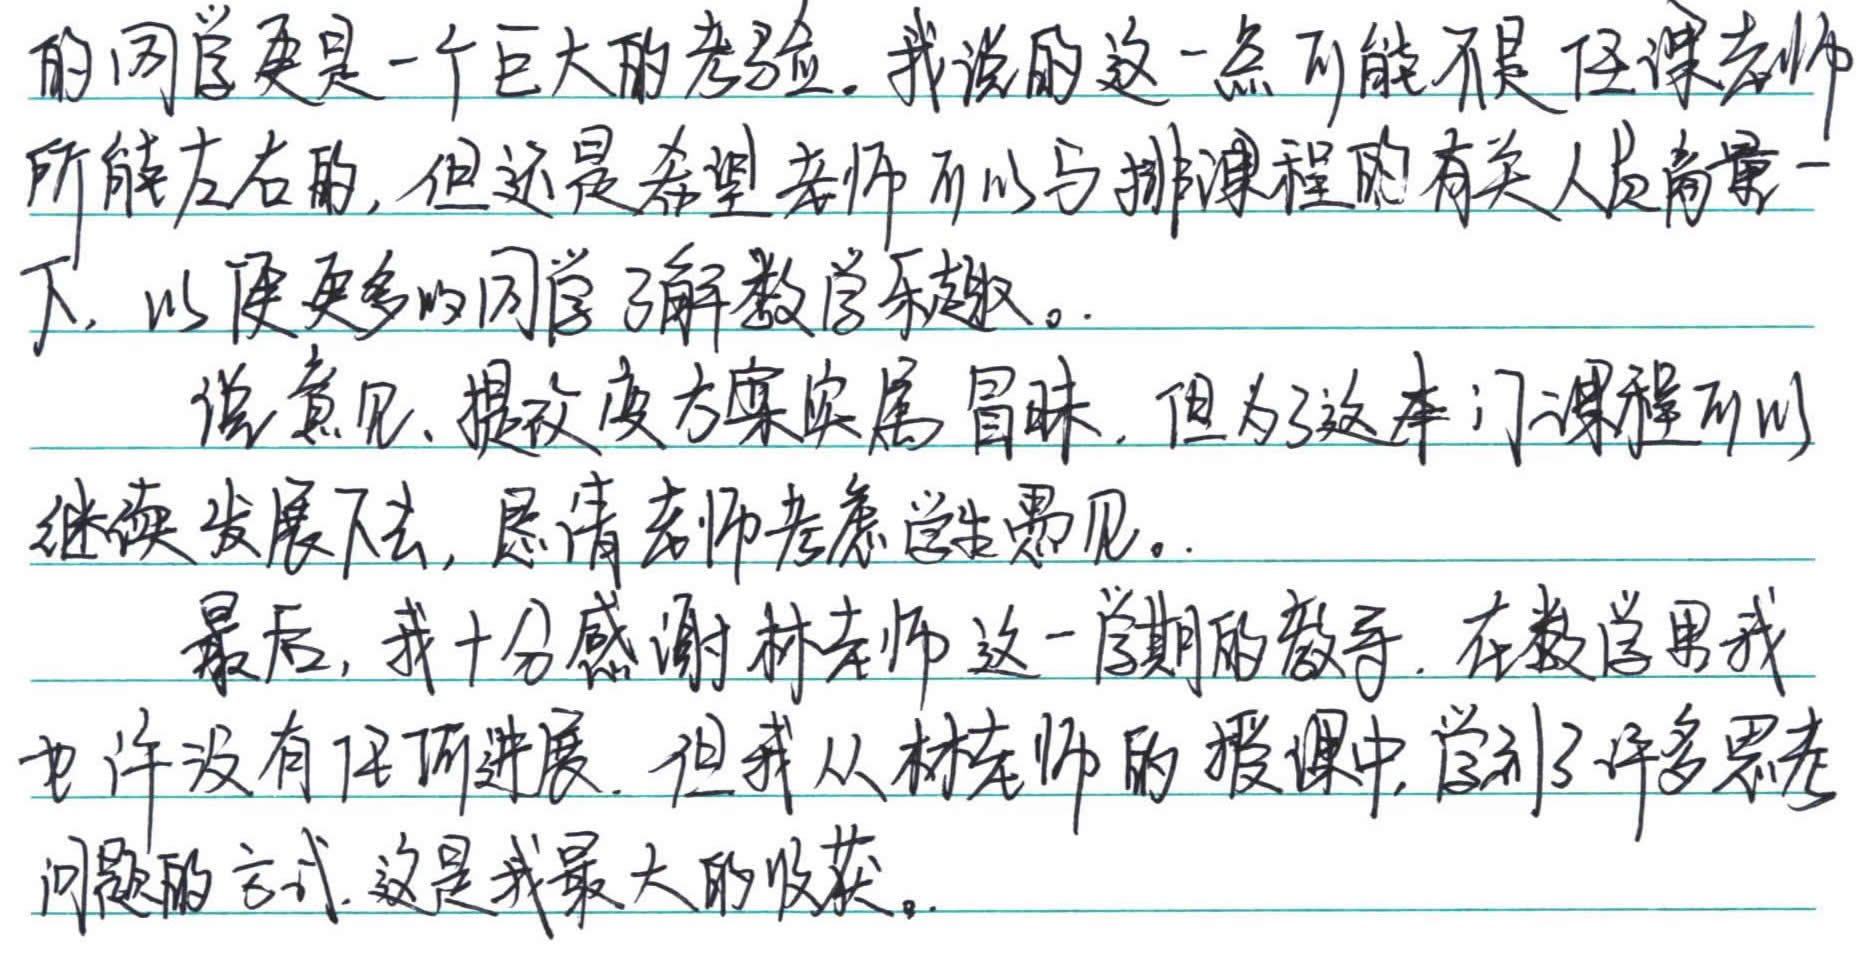 的同学更是一个巨大的考验。我说的这一点可能不是任课老师
所能左右的,但还是希望老师可以与排课程的有关人员商量一
下,以便更多的同学了解数学乐趣。
说意见、提改度方案实属冒昧,但为了这本门课程可以
继续发展下去,恳请老师考虑学生愚见。
最后,我十分感谢林老师这一学期的教导,在数学里我
也许没有任何进展,但我从林老师的授课中,学到了许多思考
问题的方式,这是我最大的收获。